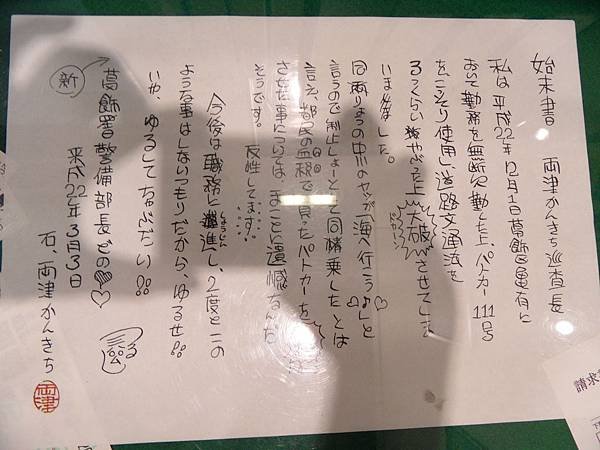 始末書　両津かんきち巡査長
私は平成22年12月1日葛飾区亀有に
おいて勤務を無断欠勤した上、パトカー111号
をこっそり使用し道路交通法を
るっくらいやぶった上、大破させてしま
いました。
同両りょうの中川のヤツが「海へ行こう♪」と
言うので制止しよーとして同情乗したとは
言え、都民の血税で買ったパトカーを
させた事については、まことに遺憾なんだ
そうです。反性してます。
今後は職務に邁進し、2度とこの
ような事はしないつもりだから、ゆるせ!!
いや、ゆるしてちょうだい!!
葛飾署警備部長どの♡
新
平成22年3月3日
右、両津かんきち
両津
請求